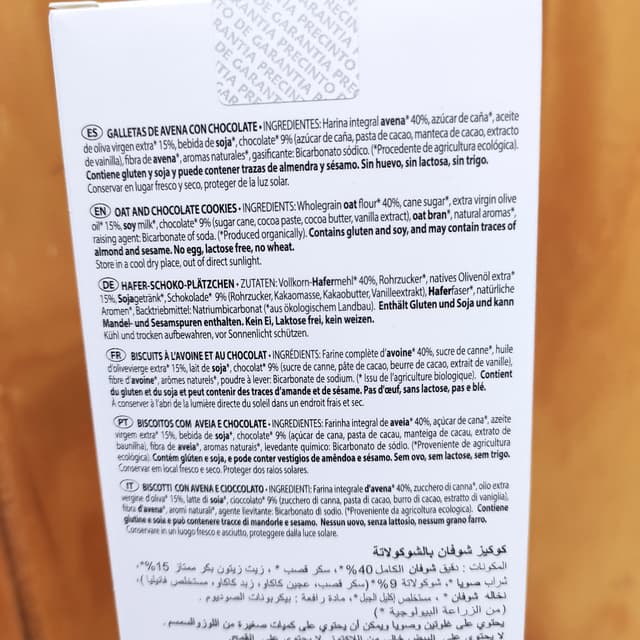 PRECINTO
TO DE GARANTIA PRECINTO
DE GARANTIA
ES GALLETAS DE AVENA CON CHOCOLATE • INGREDIENTES: Harina integral avena* 40%, azúcar de caña*, aceite
de oliva virgen extra* 15%, bebida de soja*, chocolate* 9% (azúcar de caña, pasta de cacao, manteca de cacao, extracto
de vainilla), fibra de avena*, aromas naturales*, gasificante: Bicarbonato sódico. (*Procedente de agricultura ecológica).
Contiene gluten y soja y puede contener trazas de almendra y sésamo. Sin huevo, sin lactosa, sin trigo.
Conservar en lugar fresco y seco, proteger de la luz solar.
EN OAT AND CHOCOLATE COOKIES • INGREDIENTS: Wholegrain oat flour* 40%, cane sugar*, extra virgin olive
oil* 15%, soy milk*, chocolate* 9% (sugar cane, cocoa paste, cocoa butter, vanilla extract), oat bran*, natural aromas*,
raising agent: Bicarbonate of soda. (*Produced organically). Contains gluten and soy, and may contain traces of
almond and sesame. No egg, lactose free, no wheat.
Store in a cool dry place, out of direct sunlight.
DE HAFER-SCHOKO-PLÄTZCHEN • ZUTATEN: Vollkorn-Hafermehl* 40%, Rohrzucker*, natives Olivenöl extra*
15%, Sojagetränk*, Schokolade* 9% (Rohrzucker, Kakaomasse, Kakaobutter, Vanilleextrakt), Haferfaser*, natürliche
Aromen*, Backtriebmittel: Natriumbicarbonat (*aus ökologischem Landbau). Enthält Gluten und Soja und kann
Mandel- und Sesamspuren enthalten. Kein Ei, Laktose frei, kein weizen.
Kühl und trocken aufbewahren, vor Sonnenlicht schützen.
FR BISCUITS À L'AVOINE ET AU CHOCOLAT • INGRÉDIENTS: Farine complète d'avoine* 40%, sucre de canne*, huile
d'olivevierge extra* 15%, lait de soja*, chocolat* 9% (sucre de canne, pâte de cacao, beurre de cacao, extrait de vanille),
fibre d'avoine*, arômes naturels*, poudre à lever: Bicarbonate de sodium. (* Issu de l'agriculture biologique). Contient
du gluten et du soja et peut contenir des traces d'amande et de sésame. Pas d'œuf, sans lactose, pas e blé.
A conserver à l'abri de la lumière directe du soleil dans un endroit frais et sec.
PT BISCOITOS COM AVEIA E CHOCOLATE • INGREDIENTES: Farinha integral de aveia* 40%, açúcar de cana*, azeite
virgem extra* 15%, bebida de soja*, chocolate* 9% (açúcar de cana, pasta de cacau, manteiga de cacau, extrato de
baunilha), fibra de aveia*, aromas naturais*, levedante químico: Bicarbonato de sódio. (*Proveniente de agricultura
ecológica). Contém glúten e soja, e pode conter vestígios de amêndoa e sésamo. Sem ovo, sem lactose, sem trigo.
Conservar em local fresco e seco. Proteger dos raios solares.
IT BISCOTTI CON AVENA E CIOCCOLATO • INGREDIENTI: Farina integrale d'avena* 40%, zucchero di canna*, olio extra
vergine d'oliva* 15%, latte di soia*, cioccolato* 9% (zucchero di canna, pasta di cacao, burro di cacao, estratto di vaniglia),
fibra d'avena*, aromi naturali*, agente lievitante: Bicarbonato di sodio. (*Proveniente da agricoltura ecologica). Contiene
glutine e soia e può contenere tracce di mandorle e sesamo. Nessun uovo, senza lattosio, nessun grano farro.
Conservare in un luogo fresco e asciutto, proteggere dalla luce solare.
كوكيز شوفان بالشوكولاتة
المكونات : دقيق شوفان الكامل 40% *، سكر قصب *، زيت زيتون بكر ممتاز 15%*،
شراب صويا *، شوكولاتة 9% *(سكر قصب، عجين كاكاو، زبد كاكاو، مستخلص فانيليا )،
نخاله شوفان *، مستخلص إكليل الجبل*، مادة رافعة : بيكربونات الصوديوم .
(* من الزراعة البيولوجية )
يحتوي على غلوتين وصويا ويمكن أن يحتوي على كميات صغيرة من اللوز والسمسم.